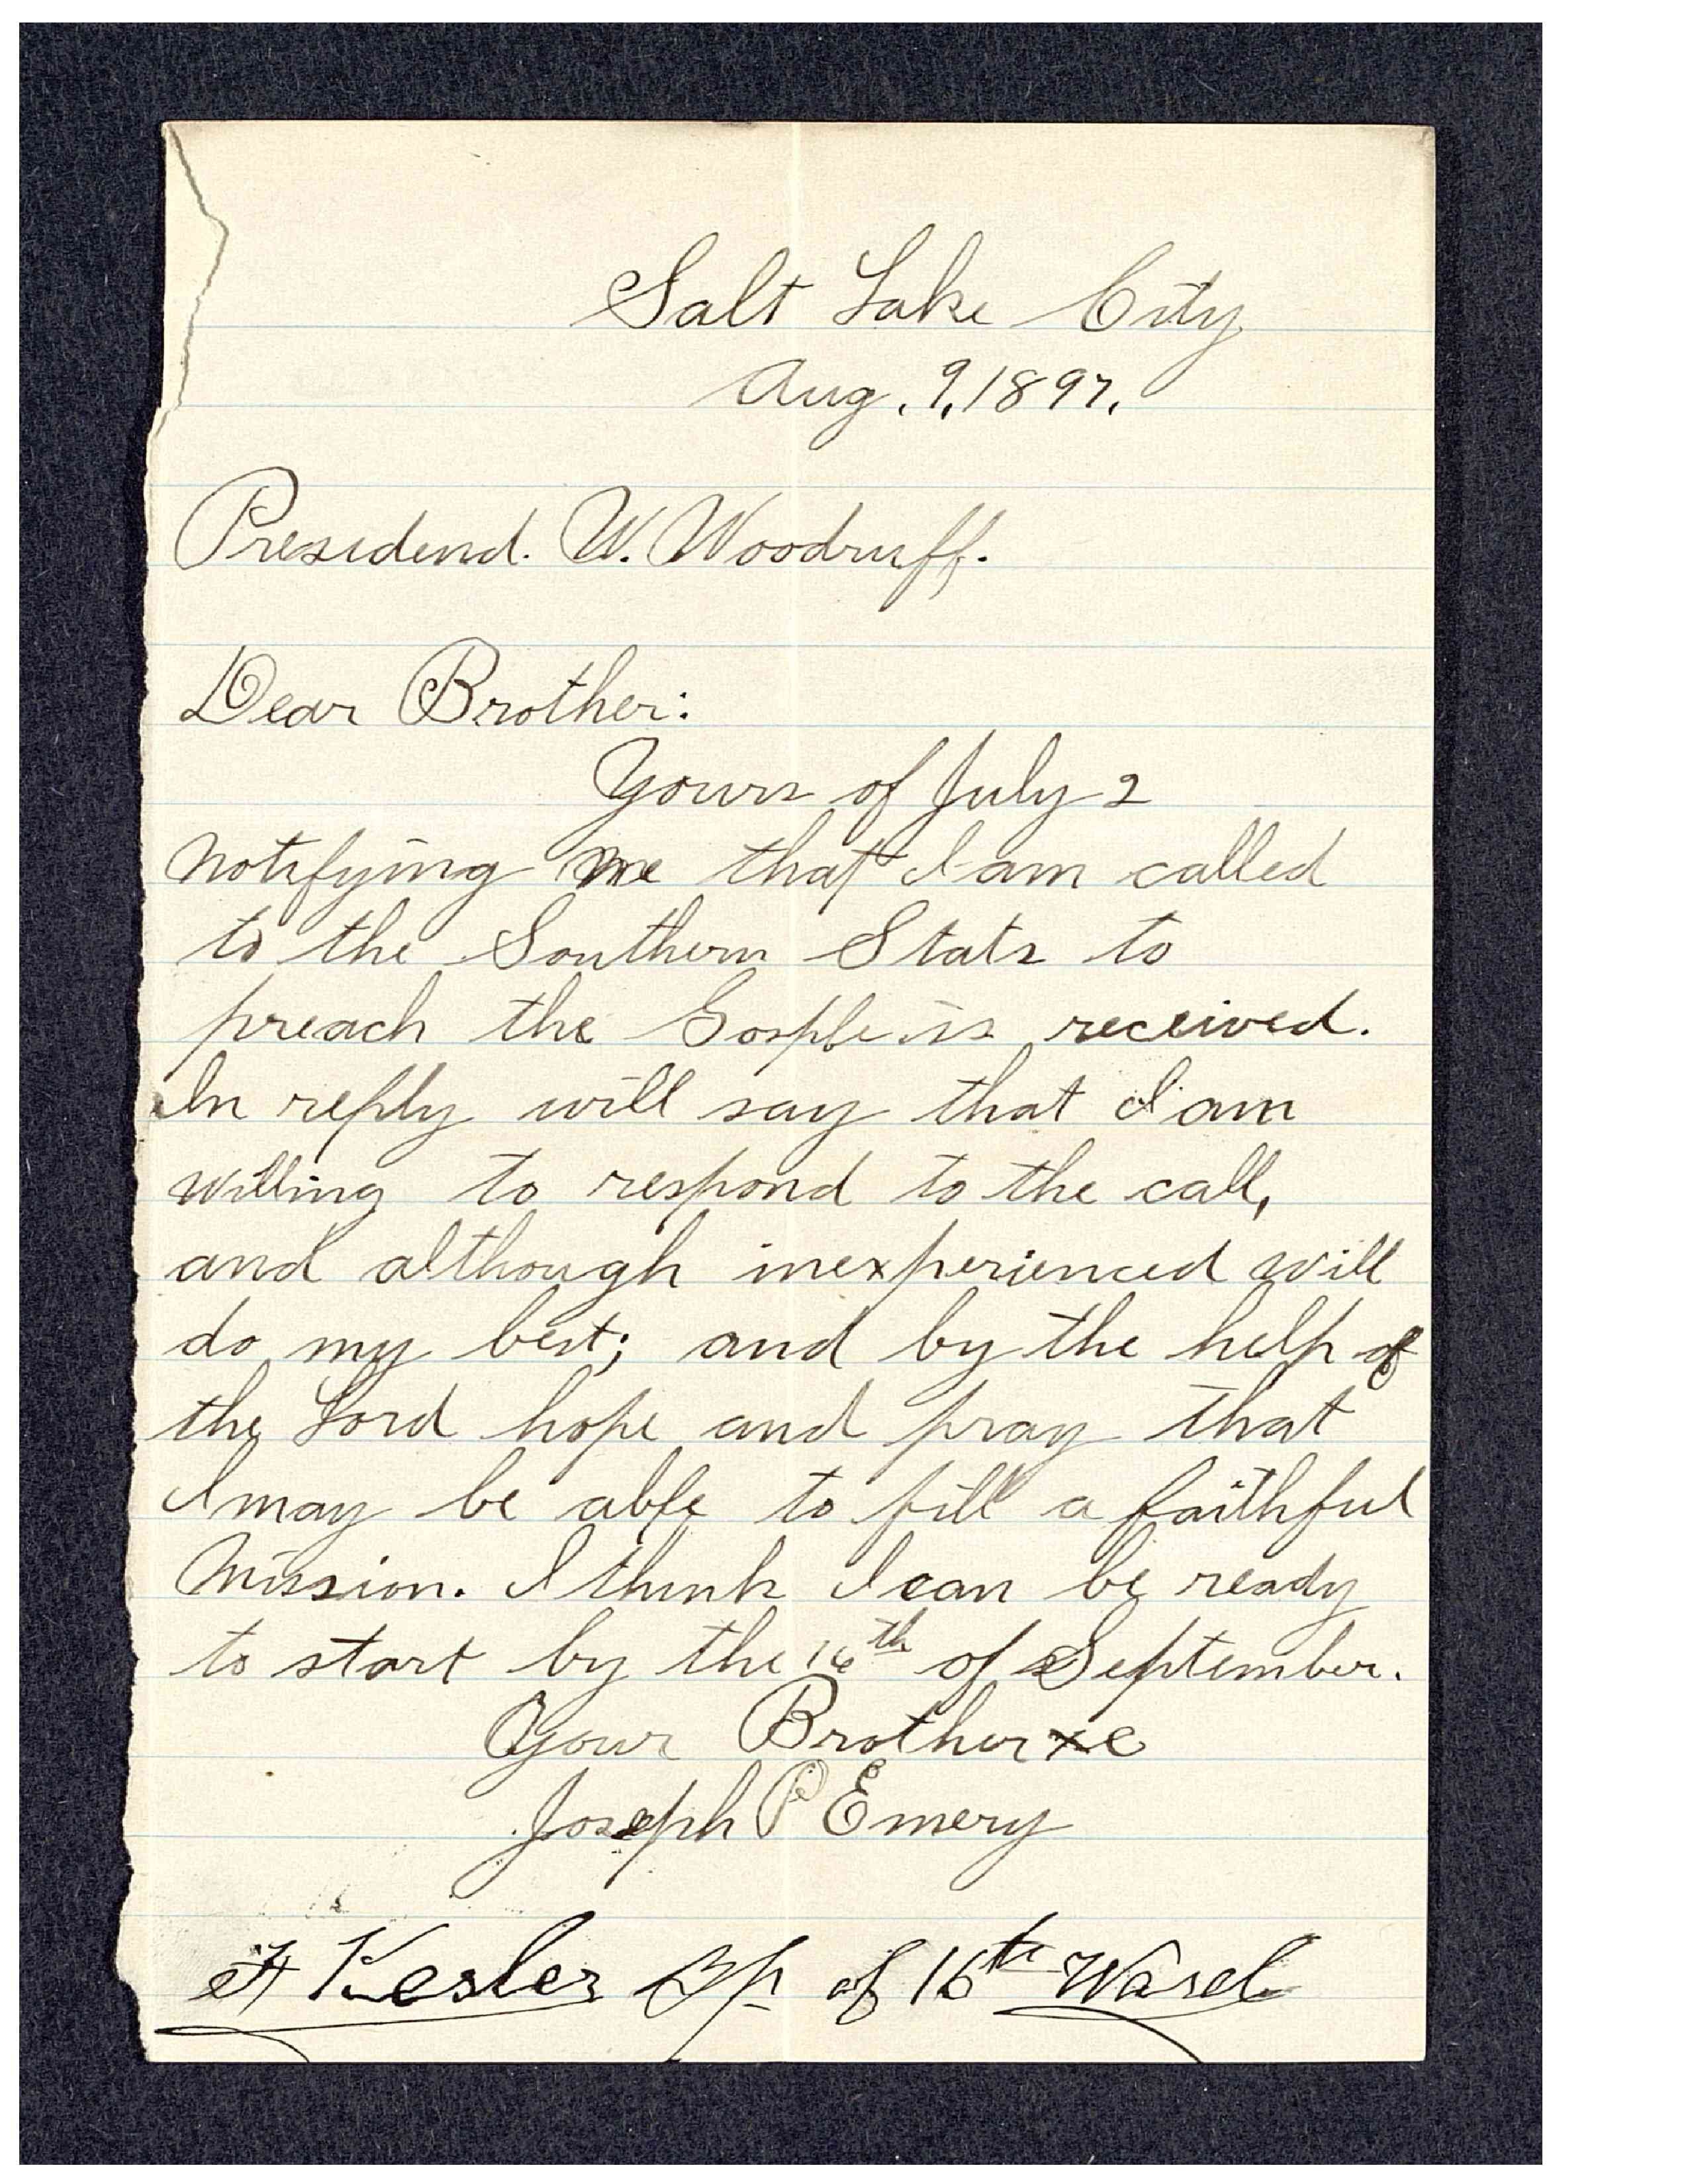 Salt Lake City
Aug. 9, 1897.
Presidend. W. Woodruff.
Dear Brother:
Yours of July 2
notifying me that I am called
to the Southern Stats to
preach the Gosple is received.
In reply will say that I am
willing to respond to the call,
and although inexperienced will
do my best; and by the help of
the Lord hope and pray that
I may be able to fill a faithful
Mission. I think I can be ready
to start by the 16th of September.
Your Brother &c
Joseph P Emery
F Kesler Bp of 16th Ward